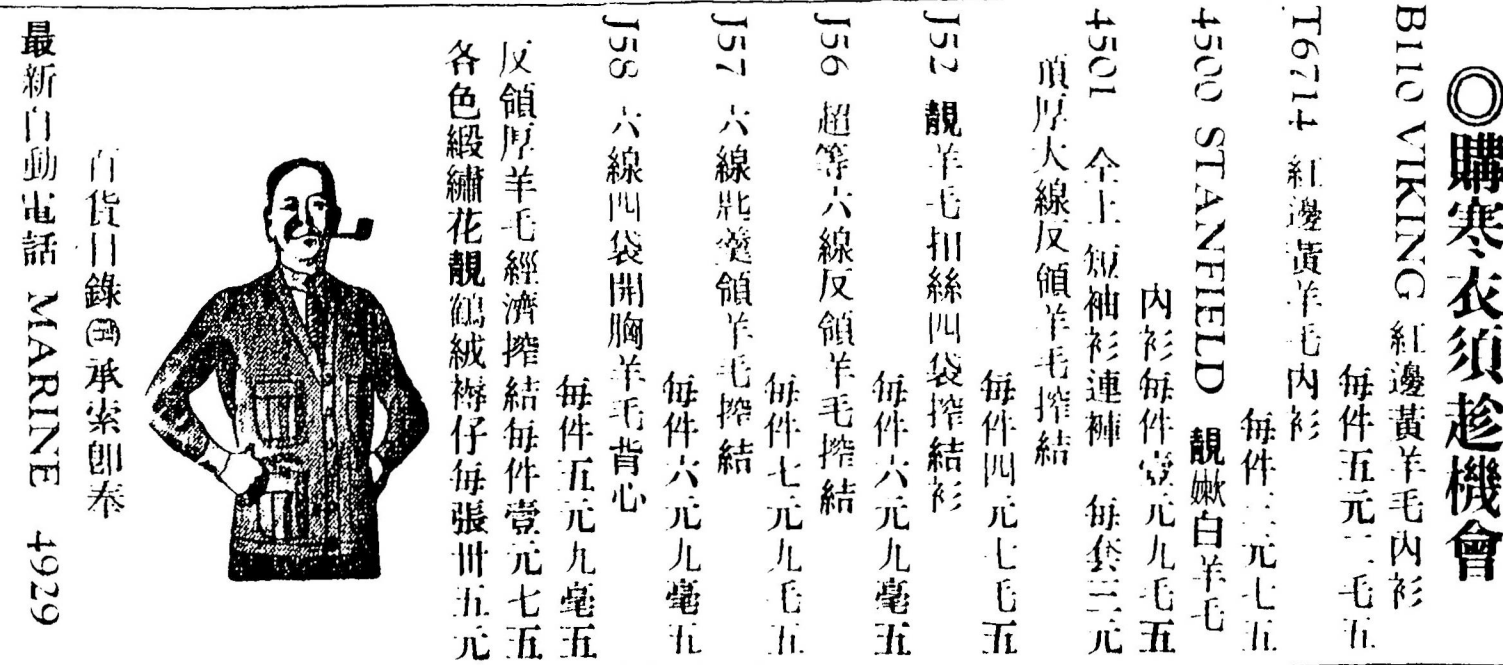 ◎購寒衣須趁機會
B110 VIKING 紅邊黃羊毛內衫
每件五元二毛五
T6714 紅邊黃羊毛內衫
每件二元七五
4500 STANFIELD 靚嫩白羊毛
內衫每件壹元九毛五
4501 仝上短袖衫連褲 每套三元
頂厚大線反領羊毛搾結
每件四元七毛五
J52 靚羊毛扣絲四袋搾結衫
每件六元九毫五
J56 超等六線反領羊毛搾結
每件七元九毛五
J57 六線 領羊毛搾結
每件六元九毫五
J58 六線四袋開胸羊毛背心
每件五元九毫五
反領厚羊毛經濟搾結每件壹元七五
各色緞繡花靚鶴絨褥仔每張卅五元
百貨目錄 承索即奉
最新自動電話 MARINE 4929